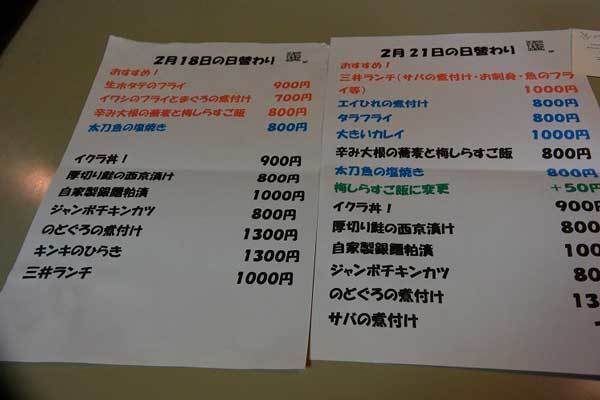 2月18日の日替わり
おすすめ！
生ホタテのフライ 900円
イワシのフライとまぐろの煮付け 700円
辛み大根の蕎麦と梅しらすご飯 800円
太刀魚の塩焼き 800円
イクラ丼！ 900円
厚切り鮭の西京漬け 800円
自家製銀鱈粕漬 1000円
ジャンボチキンカツ 800円
のどぐろの煮付け 1300円
キンキのひらき 1300円
三井ランチ 1000円
2月 21日の日替わり
おすすめ！
三井ランチ(サバの煮付け・お刺身・魚のフラ
イ等) 1000円
エイひれの煮付け 800円
タラフライ 800円
大きいカレイ 1000円
辛み大根の蕎麦と梅しらすご飯 800円
太刀魚の塩焼き 800円
梅しらすご飯に変更 +50円
イクラ丼！ 900円
厚切り鮭の西京漬け 800
自家製銀鱈粕漬 1000
ジャンボチキンカツ 80
のどぐろの煮付け 13
サバの煮付け